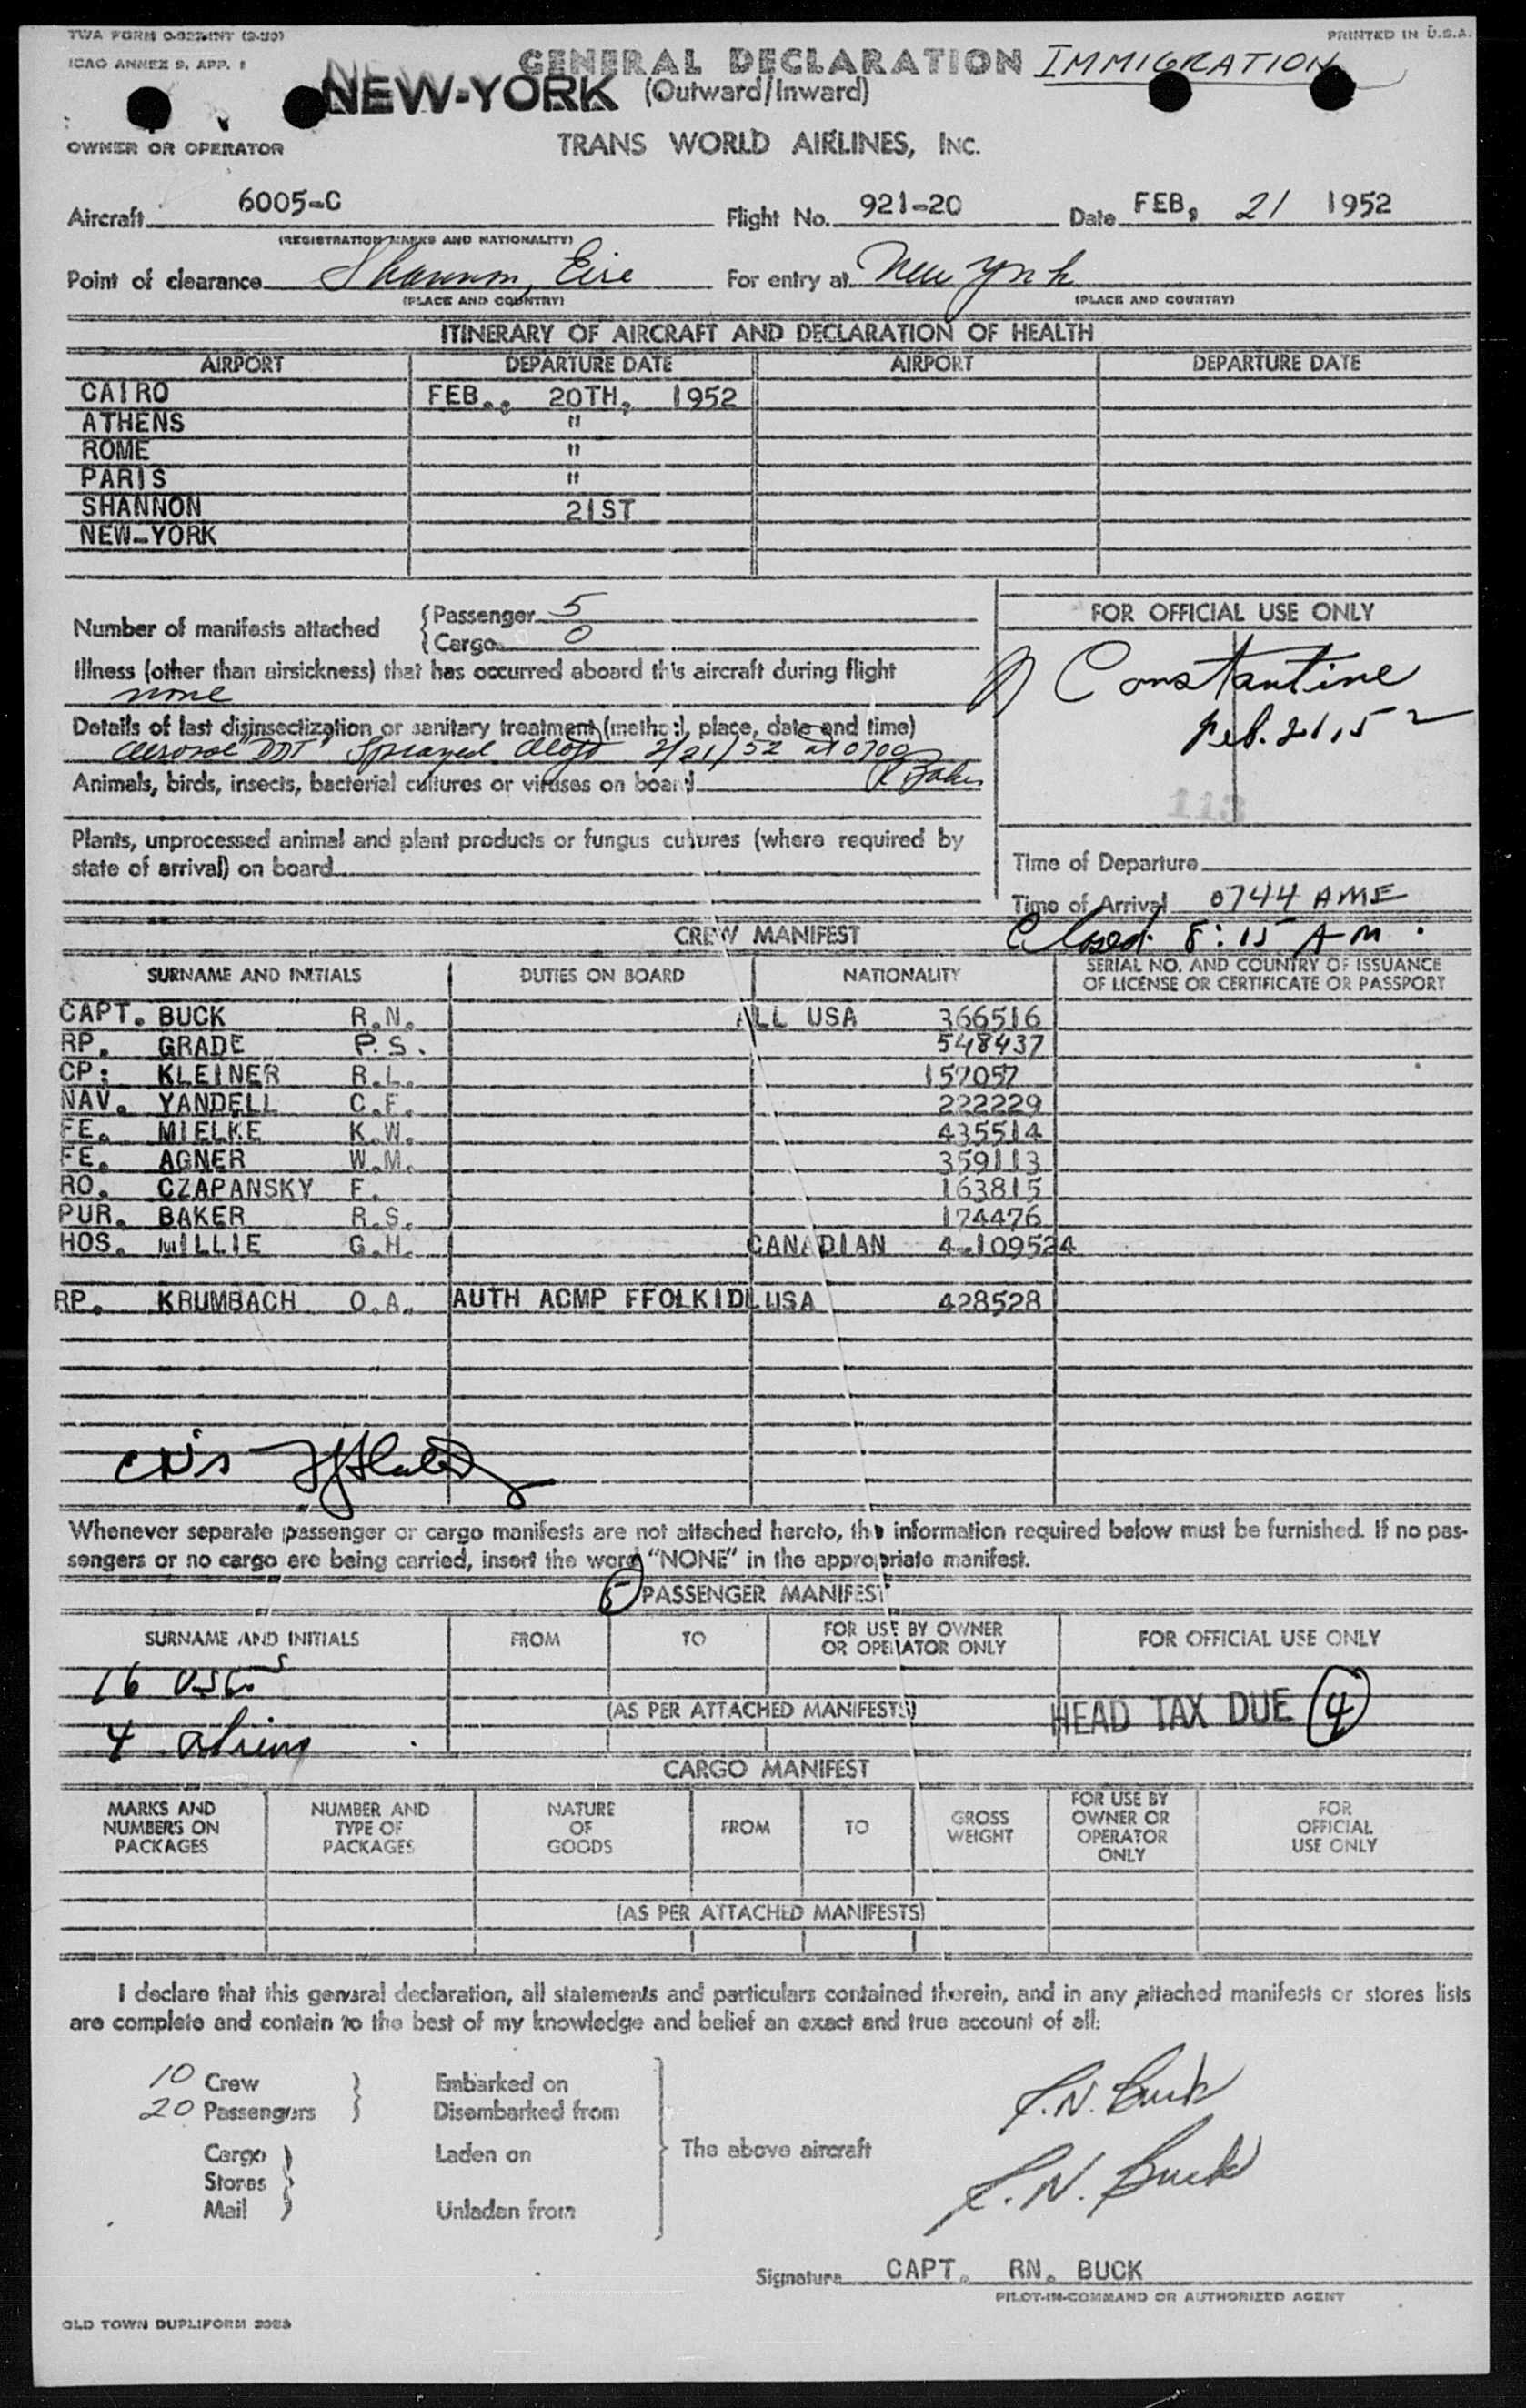 TWA FORM O-927-INT (2-50) PRINTED IN U.S.A.
ICAO ANNEX 9, APP. 1
GENERAL DECLARATION IMMIGRATION
NEW-YORK (Outward/Inward)
OWNER OR OPERATOR TRANS WORLD AIRLINES, INC.
Aircraft 6005-C Flight No. 921-20 Date FEB, 21 1952
(REGISTRATION MARKS AND NATIONALITY)
Point of clearance Shannon, Eire For entry at New York
(PLACE AND COUNTRY) (PLACE AND COUNTRY)
ITINERARY OF AIRCRAFT AND DECLARATION OF HEALTH
AIRPORT DEPARTURE DATE AIRPORT DEPARTURE DATE
CAIRO FEB., 20TH, 1952
ATHENS "
ROME "
PARIS "
SHANNON 21ST
NEW-YORK
Number of manifests attached { Passenger 5
{ Cargo 0
FOR OFFICIAL USE ONLY
Illness (other than airsickness) that has occurred aboard this aircraft during flight
none
Constantine
Feb. 21, 52
Details of last disinsectization or sanitary treatment (method, place, date and time)
Aerosol "DDT" Sprayed Aloft 2/21/52 at 0700
R Baker
Animals, birds, insects, bacterial cultures or viruses on board
113
Plants, unprocessed animal and plant products or fungus cultures (where required by
state of arrival) on board
Time of Departure
Time of Arrival 0744 AME
Closed 8:15 AM.
CREW MANIFEST
SURNAME AND INITIALS DUTIES ON BOARD NATIONALITY SERIAL NO. AND COUNTRY OF ISSUANCE
OF LICENSE OR CERTIFICATE OR PASSPORT
CAPT. BUCK R.N. ALL USA 366516
RP. GRADE P.S. 548437
CP: KLEINER R.L. 157057
NAV. YANDELL C.F. 222229
FE. MIELKE K.W. 435514
FE. AGNER W.M. 359113
RO. CZAPANSKY F. 163815
PUR. BAKER R.S. 174476
HOS. MILLIE G.H. CANADIAN 4.109524
RP. KRUMBACH O.A. AUTH ACMP FFOLKIDL USA 428528
Whenever separate passenger or cargo manifests are not attached hereto, the information required below must be furnished. If no pas-
sengers or no cargo are being carried, insert the word "NONE" in the appropriate manifest.
5 PASSENGER MANIFEST
SURNAME AND INITIALS FROM TO FOR USE BY OWNER
OR OPERATOR ONLY FOR OFFICIAL USE ONLY
16 USCs
(AS PER ATTACHED MANIFESTS) HEAD TAX DUE 4
4 aliens
CARGO MANIFEST
MARKS AND
NUMBERS ON
PACKAGES
NUMBER AND
TYPE OF
PACKAGES
NATURE
OF
GOODS
FROM
TO
GROSS
WEIGHT
FOR USE BY
OWNER OR
OPERATOR
ONLY
FOR
OFFICIAL
USE ONLY
(AS PER ATTACHED MANIFESTS)
I declare that this general declaration, all statements and particulars contained therein, and in any attached manifests or stores lists
are complete and contain to the best of my knowledge and belief an exact and true account of all:
10 Crew } Embarked on
20 Passengers } Disembarked from
Cargo } Laden on The above aircraft
Stores }
Mail } Unladen from
R.N. Buck
R.N. Buck
Signature CAPT. RN. BUCK
PILOT-IN-COMMAND OR AUTHORIZED AGENT
OLD TOWN DUPLIFORM